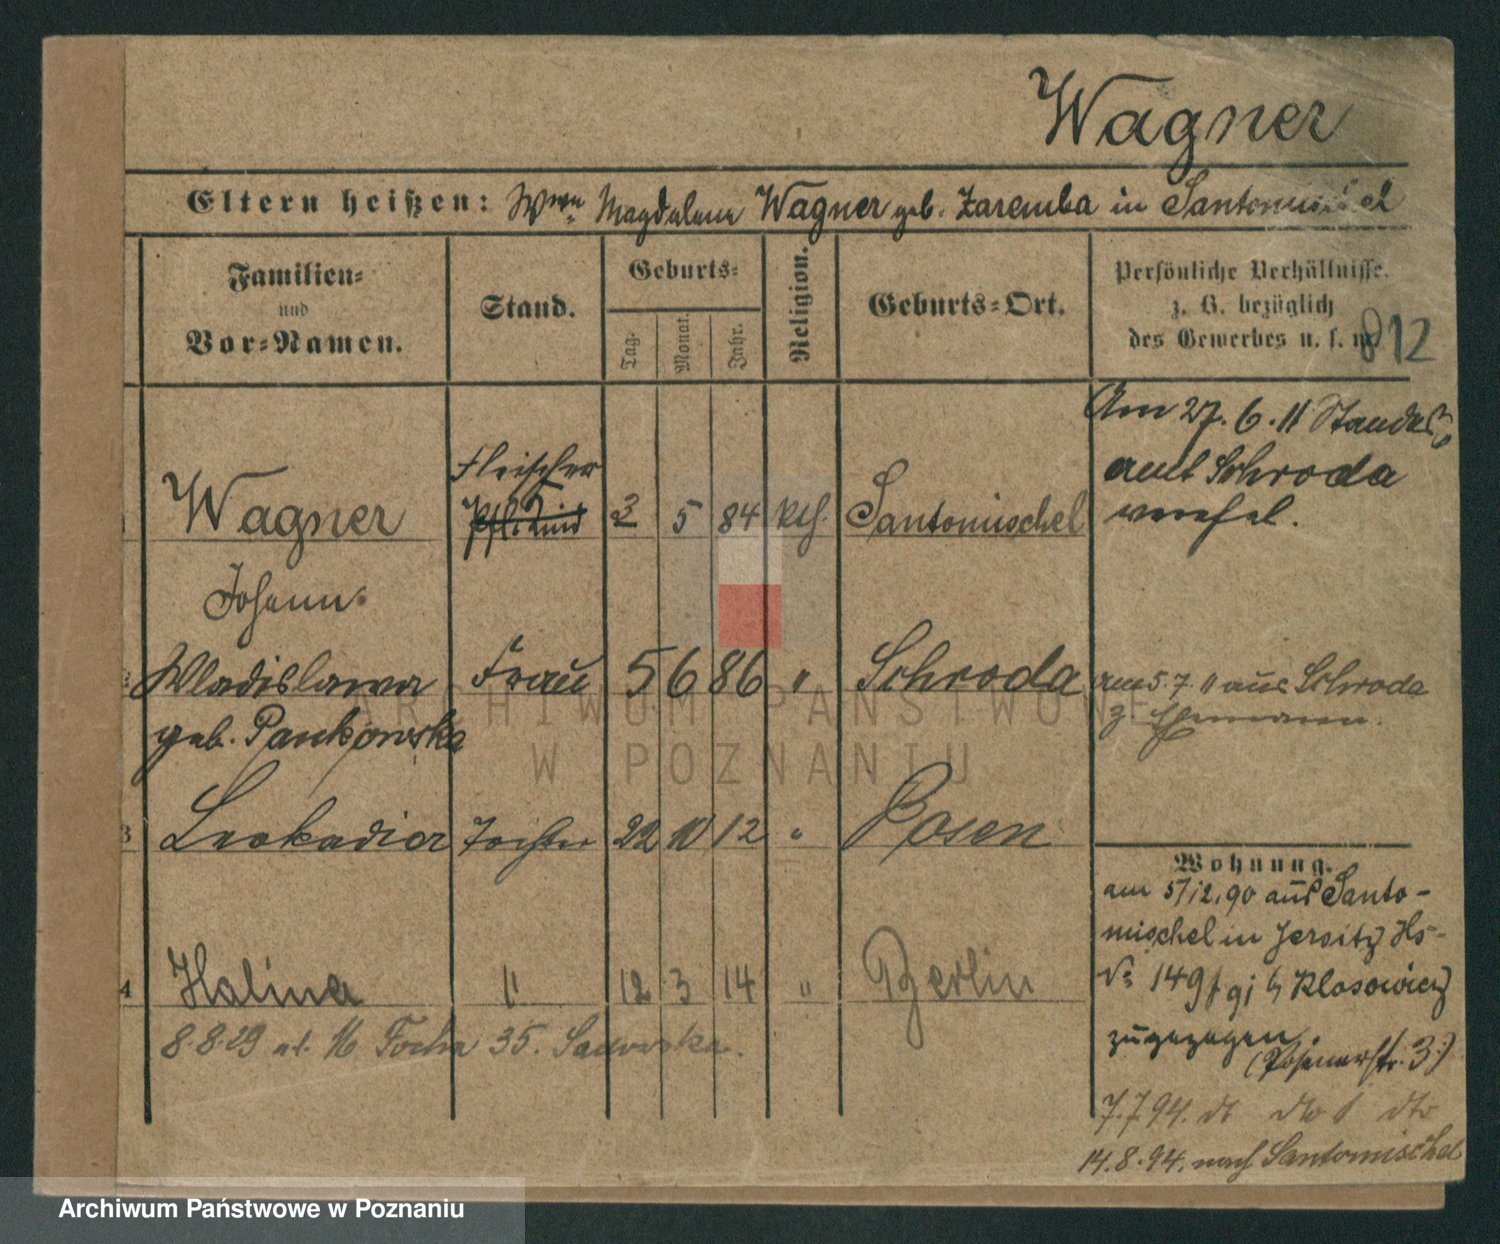 Wagner
Eltern heißen: Wwe Magdalena Wagner geb. Zaremba in Santomischel
Familien- und Vor-Namen.
Stand.
Geburts-
Tag. Monat. Jahr.
Religion.
Geburts-Ort.
Persönliche Verhältnisse.
z. B. bezüglich
des Gewerbes u. s. w.
812
Am 27. 6. 11 Standes
amt Schroda
vereh.
Fleischer
1 Wagner Pfl. Kind 3 5 84 kth. Santomischel
Johann
2 Wladislawa Frau 5 6 86 " Schroda
am 5. 7. 11 aus Schroda
z Ehemann.
geb. Pankowska
3 Leokadia Tochter 22 10 12 " Posen
4 Halina " 12 3 14 " Berlin
8.8.29 ul. M Focha 35. Sadowska.
Wohnung.
am 5/12.90 aus Santo-
mischel in Jersitz Hs-
No 149 bei Klosowicz
zugezogen.
(Posenerstr. 3.)
7.7.94. dto dto
14.8.94. nach Santomischel
ARCHIWUM PAŃSTWOWE
W POZNANIU
Archiwum Państwowe w Poznaniu